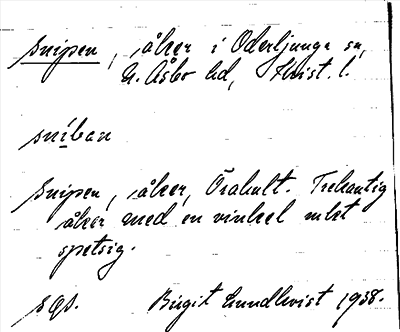 Snipen, åker i Oderljunga sn,
N. Åsbo hd, Krist. l.
sníban
Snipen, åker, Örahult. Trekantig
åker med en vinkel mkt
spetsig.
SGS. Birgit Lundkvist 1938.